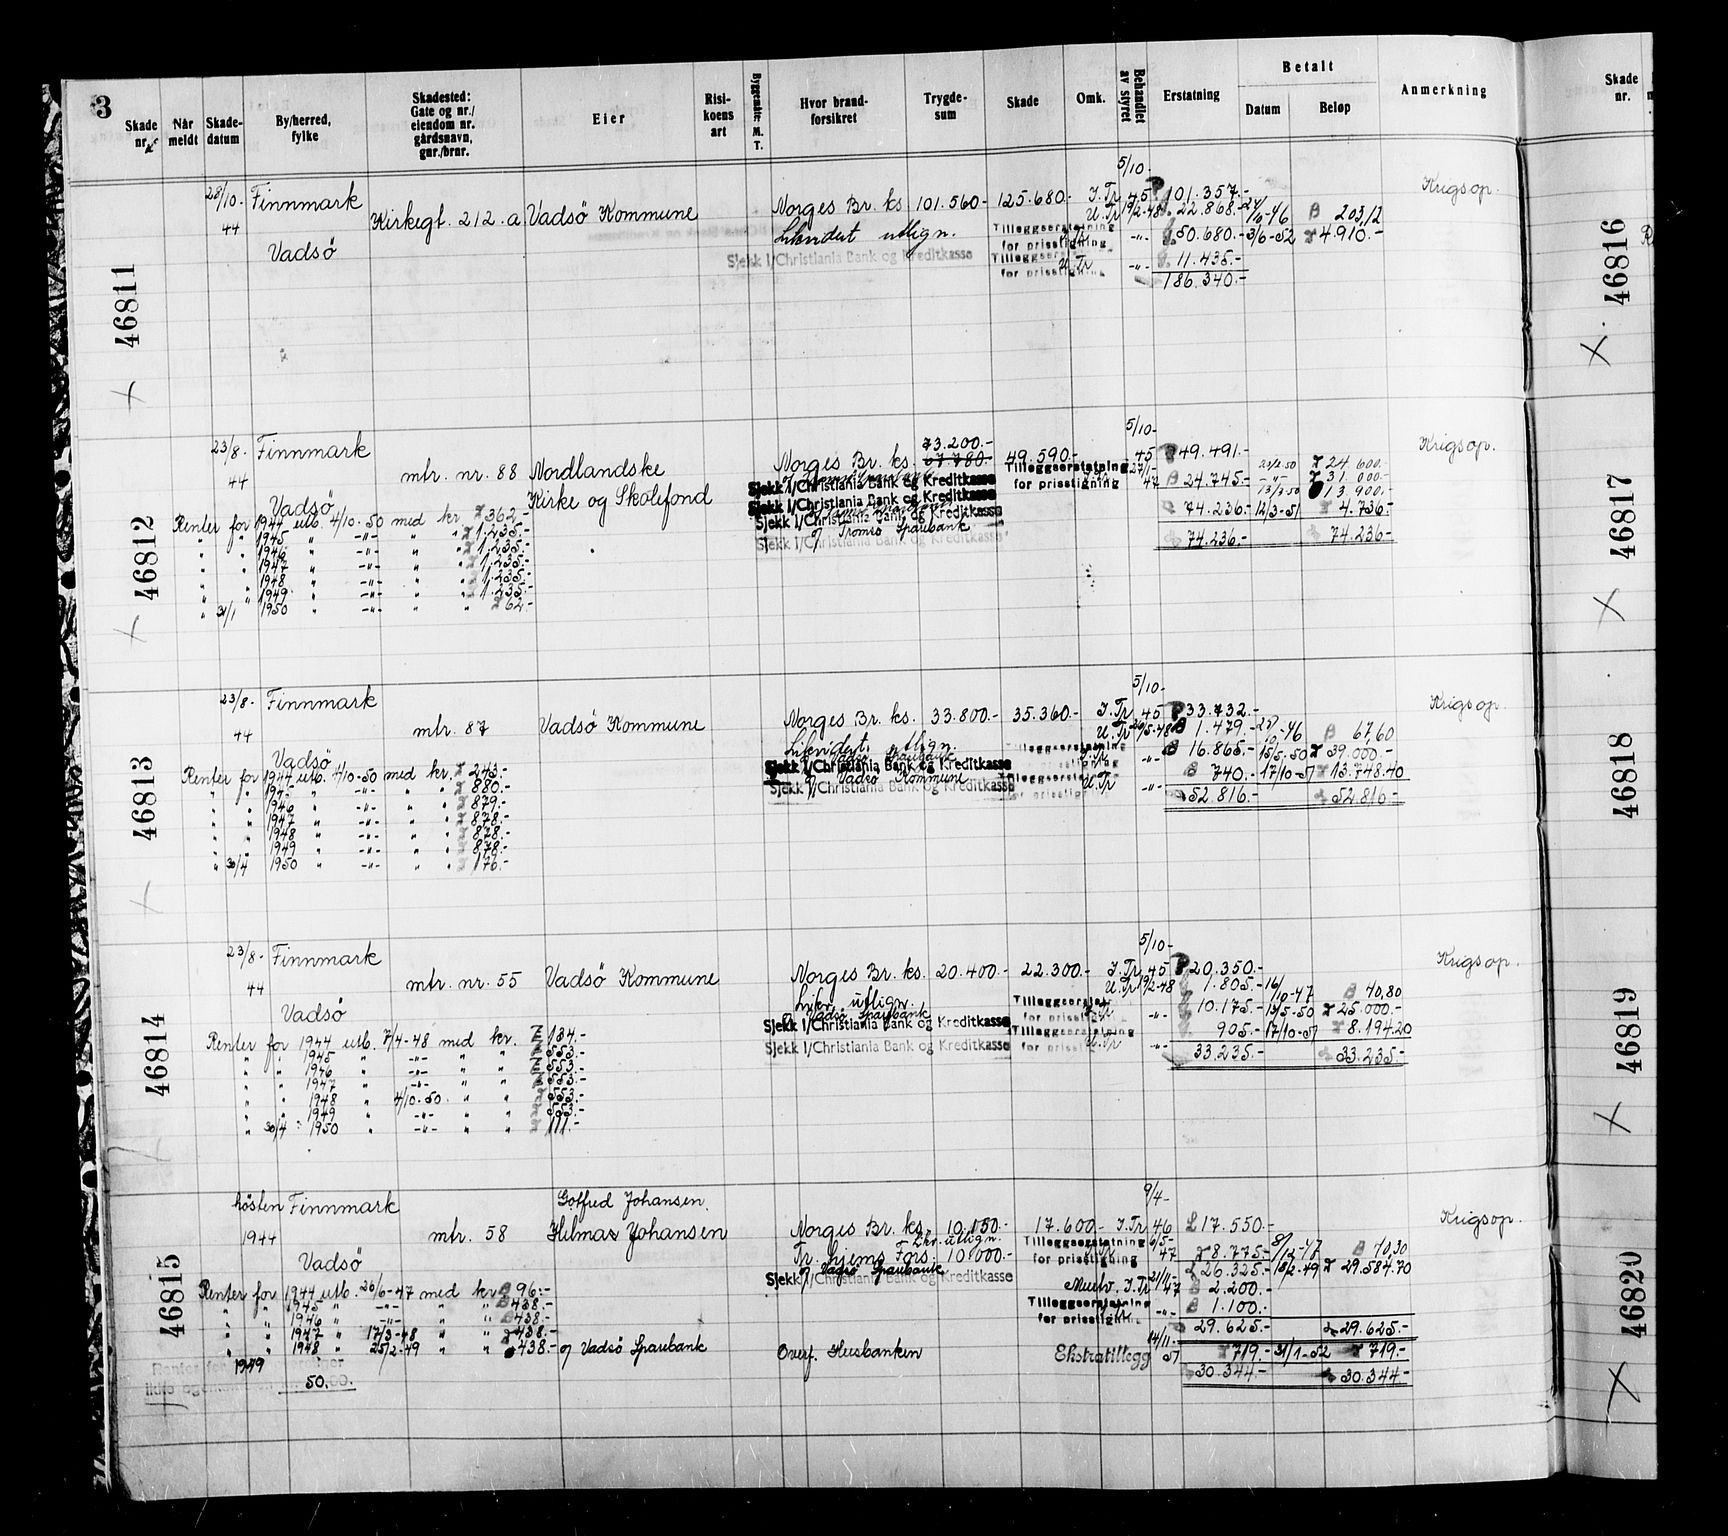 3
Skade nr.
Når meldt
Skade-datum
By/herred, fylke
Skadested: Gate og nr./ eiendom nr. gårdsnavn, gnr./brnr.
Eier
Risi-koens art
Byggemåte: M. T.
Hvor brand-forsikret
Trygde-sum
Skade
Omk.
Behandlet av styret
Erstatning
Betalt
Datum
Beløp
Anmerkning
Skade nr.
46811
28/10- 44
Finnmark
Vadsö
Kirkegt. 212.a
Vadsö Kommune
Norges Br. ks. 101.560.- 125.680.- I.Tr. 5/10-45 101.357.-
Krigsop.
Likvidert utlign. U.Tr. 19/2-48 22.868.- 203,12
Tilleggserstatning for prisstigning -"- 50.680.- 3/6-52 4.910.-
Sjekk i/Christiania Bank og Kreditkasse
Tilleggserstatning for prisstigning U.Tr. -"- 11.435.-
186.340.-
46816
46812
23/8- 44
Finnmark
Vadsö
mtr. nr. 88
Nordlandske
Kirke og Skolefond
73.200.-
Norges Br. ks. 67.780.- 49.590.- 5/10-45 49.491.-
Krigsop.
24.600.-
Tilleggserstatning for prisstigning 47 24.745.- 31.000.-
13.900.-
Sjekk i/Christiania Bank og Kreditkasse
Sjekk i/Christiania Bank og Kreditkasse
Sjekk i/Christiania Bank og Kreditkasse
74.236.- 12/3-51 4.736.-
Tromsö Sparebank
Sjekk i/Christiania Bank og Kreditkasse
74.236.- 74.236.-
Renter for 1944 utb. 4/10-50 med kr. 362.-
" " 1945 " -"- " " 1.235.-
" " 1946 " -"- " " 1.235.-
" " 1947 " -"- " " 1.235.-
" " 1948 " -"- " " 1.235.-
" " 1949 " -"- " " 1.235.-
" 31/1 1950 " -"- " " 62.-
46817
46813
23/8- 44
Finnmark
Vadsö
mtr. 87
Vadsö Kommune
Norges Br. ks. 33.800.- 35.360.- I.Tr. 5/10-45 33.732.-
Krigsop.
Likvidert utlign. U.Tr. 1.479.- 67,60
Tilleggserstatning for prisstigning -"- 16.865.- 15/5-50 39.000.-
Sjekk i/Christiania Bank og Kreditkasse
Vadsö Kommune
Tilleggserstatning for prisstigning U.Tr. -"- 740.- 17/10-51 13.748.40
Sjekk i/Christiania Bank og Kreditkasse
52.816.- 52.816.-
Renter for 1944 utb. 4/10-50 med kr. 243.-
" " 1945 " -"- " " 880.-
" " 1946 " -"- " " 879.-
" " 1947 " -"- " " 878.-
" " 1948 " -"- " " 878.-
" " 1949 " -"- " " 878.-
" 30/4 1950 " -"- " " 176.-
46818
46814
23/8- 44
Finnmark
Vadsö
mtr. nr. 55
Vadsö Kommune
Norges Br. ks. 20.400.- 22.300.- I.Tr. 5/10-45 20.350.-
Krigsop.
Likv. utlign. U.Tr. 19/2-48 1.805.- 16/10-47 40,80
Vadsö Sparebank
Tilleggserstatning for prisstigning -"- 10.175.- 25.000.-
Sjekk i/Christiania Bank og Kreditkasse
Tilleggserstatning for prisstigning U.Tr. -"- 905.- 17/10-51 8.194.20
Sjekk i/Christiania Bank og Kreditkasse
33.235.- 33.235.-
Renter for 1944 utb. 7/4-48 med kr. 134.-
" " 1945 " -"- " " 553.-
" " 1946 " -"- " " 553.-
" " 1947 " -"- " " 553.-
" " 1948 " 4/10-50 " " 553.-
" " 1949 " -"- " " 553.-
" 30/4 1950 " -"- " " 111.-
46819
46815
hösten 1944
Finnmark
Vadsö
mtr. 58
Gotfred Johansen.
Hilmar Johansen
Norges Br. ks. 10.150.- 17.600.- I.Tr. 9/4-46 17.550.-
Krigsop.
Likv. utlign.
Tr.hjems Fors. 10.000.-
Tilleggserstatning for prisstigning 6/5-47 8.775.- 8/12-47 40,30
Vadsö Sparebank
26.325.- 18/2-49 29.584.70
Sjekk i/Christiania Bank og Kreditkasse
I.Tr. 21/11-47 2.200.-
Tilleggserstatning for prisstigning -"- 1.100.-
29.625.- 29.625.-
Renter for 1944 utb. 26/6-47 med kr. 96.-
" " 1945 " -"- " " 438.-
" " 1946 " -"- " " 438.-
" " 1947 " 17/3-48 " " 438.-
" " 1948 " 25/2-49 " " 438.- Vadsö Sparebank
Overf. Husbanken
Ekstratillegg 14/11-51 719.- 31/1-52 719.-
30.344.- 30.344.-
1949
50.00.
46820